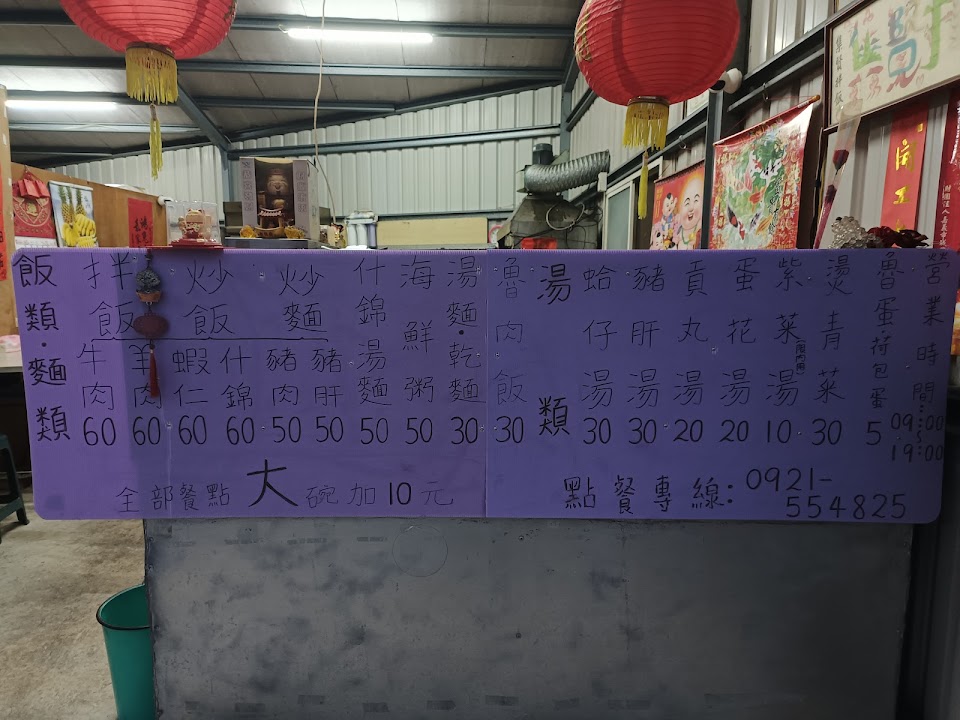 飯類・麵類
拌飯 炒飯 炒麵
牛肉 60
羊肉 60
蝦仁 60
什錦 60
豬肉 50
豬肝 50
什錦湯麵 50
海鮮粥 50
湯麵・乾麵 30
魯肉飯 30
湯類
蛤仔湯 30
豬肝湯 30
貢丸湯 20
蛋花湯 20
紫菜湯 10
燙青菜 30
魯蛋・荷包蛋 5
營業時間:
09:00
~
19:00
全部餐點大碗加10元
點餐專線:0921-
554825